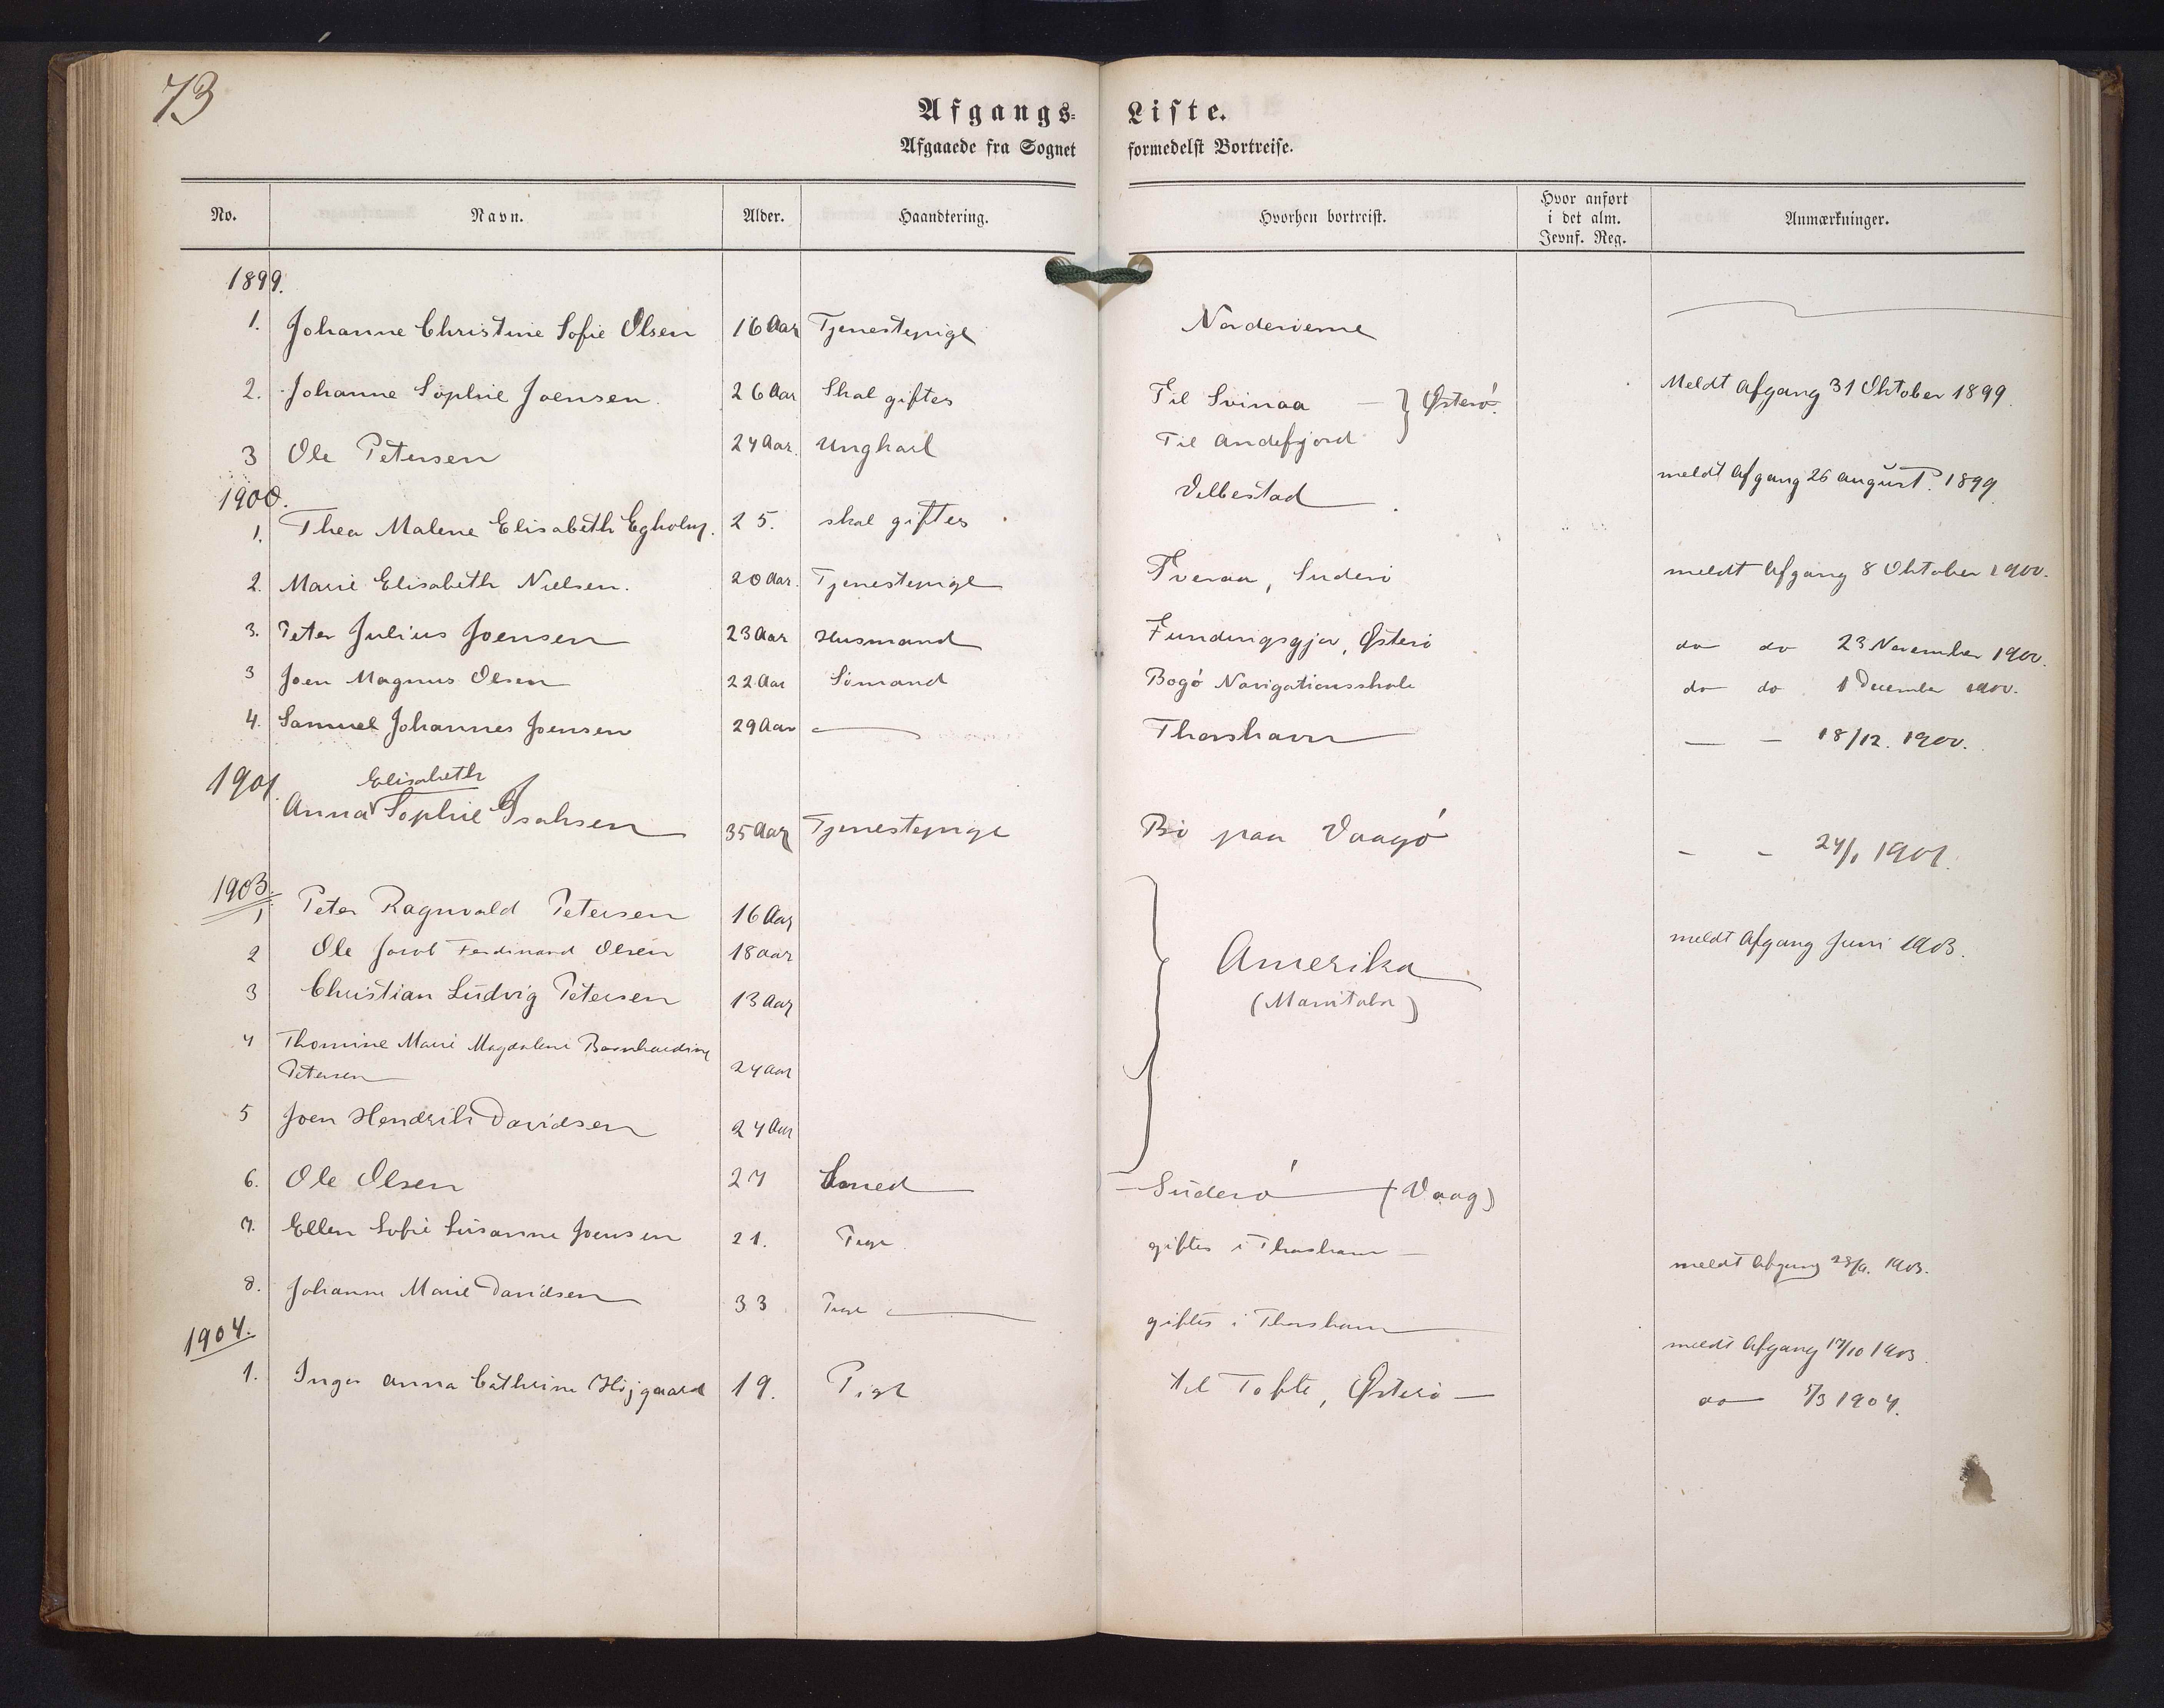 73
Afgangs-Liste.
Afgaaede fra Sognet formedelst Bortreise.
No. Navn. Alder. Haandtering. Hvorhen bortreist. Hvor anført i det alm. Jevnf. Reg. Anmærkninger.
1899.
1. Johanne Christine Sofie Olsen 16 Aar Tjenestepige Norderøerne
2. Johanne Sophie Joensen. 26 Aar Skal giftes Til Svinaa } Østerö. Meldt Afgang 31 Oktober 1899.
3 Ole Petersen 24 Aar. Ungkarl Til Andefjord meldt Afgang 26 august 1899
1900.
1. Thea Malene Elisabeth Egholm. 25. skal giftes Velbestad
2. Marie Elisabeth Nielsen. 20 Aar. Tjenestepige Tveraa, Suderö meldt Afgang 8 Oktober 1900.
3. Peter Julius Joensen 23 Aar Husmand Fundingsgjov, Østerö do do 23 November 1900.
3 Joen Magnus Olsen 22 Aar Sömand Bogö Navigationsskole do do 1 December 1900.
4. Samuel Johannes Joensen 29 Aar — Thorshavn — — 18/12. 1900.
1901.
Elisabeth
Anna Sophie Isaksen 35 Aar Tjenestepige Bö paa Vaagö - - 24/1 1901.
1903.
1 Peter Ragnvald Petersen 16 Aar
2 Ole Jacob Ferdinand Olsen 18 aar Amerika meldt Afgang Juni 1903.
3 Christian Ludvig Petersen 13 Aar (Manitoba)
4 Thomine Marie Magdalene Bernhardine
Petersen 24 Aar
5 Joen Hendrik Davidsen 24 Aar
6. Ole Olsen 27 Smed Suderö (Vaag)
7. Ellen Sofie Susanne Joensen 21. Pige giftes i Thorshavn meldt Afgang 1903.
8. Johanne Marie Davidsen 33 Pige giftes i Thorshavn meldt Afgang 17/10 1903.
1904.
1. Inger Anna Cathrine Höjgaard 19. Pige til Tofte, Østerö do 5/3 1904.